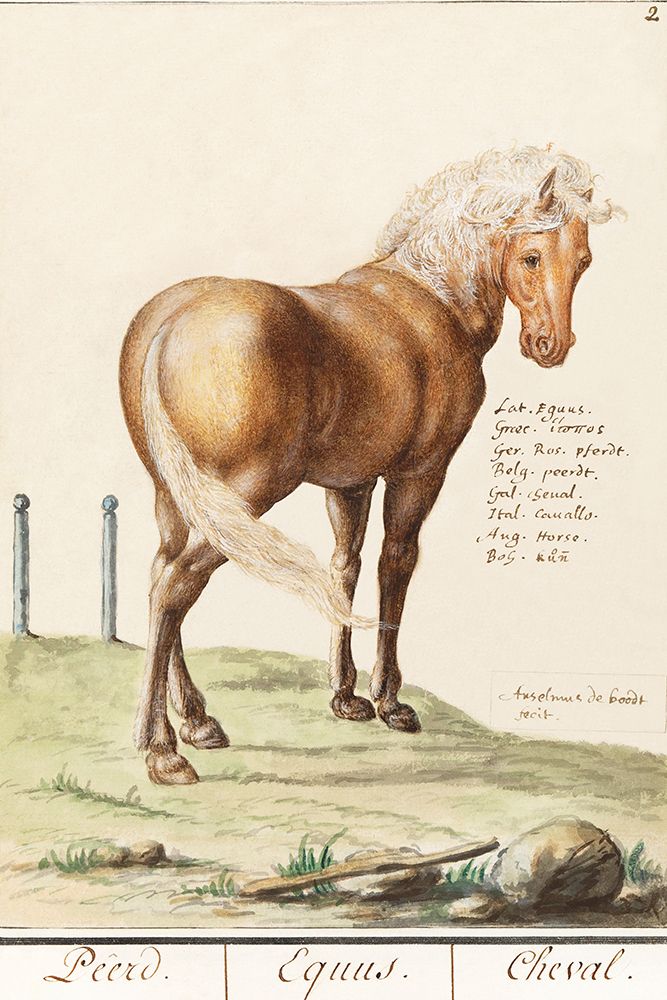 2
Lat. Equus.
Græc. ἵππος
Ger. Ros. pferdt.
Belg. peerdt.
Gal. cheval.
Ital. cauallo.
Ang. Horse.
Boh. kůň
Anselmus de boodt
fecit.
Pëerd. Equus. Cheval.